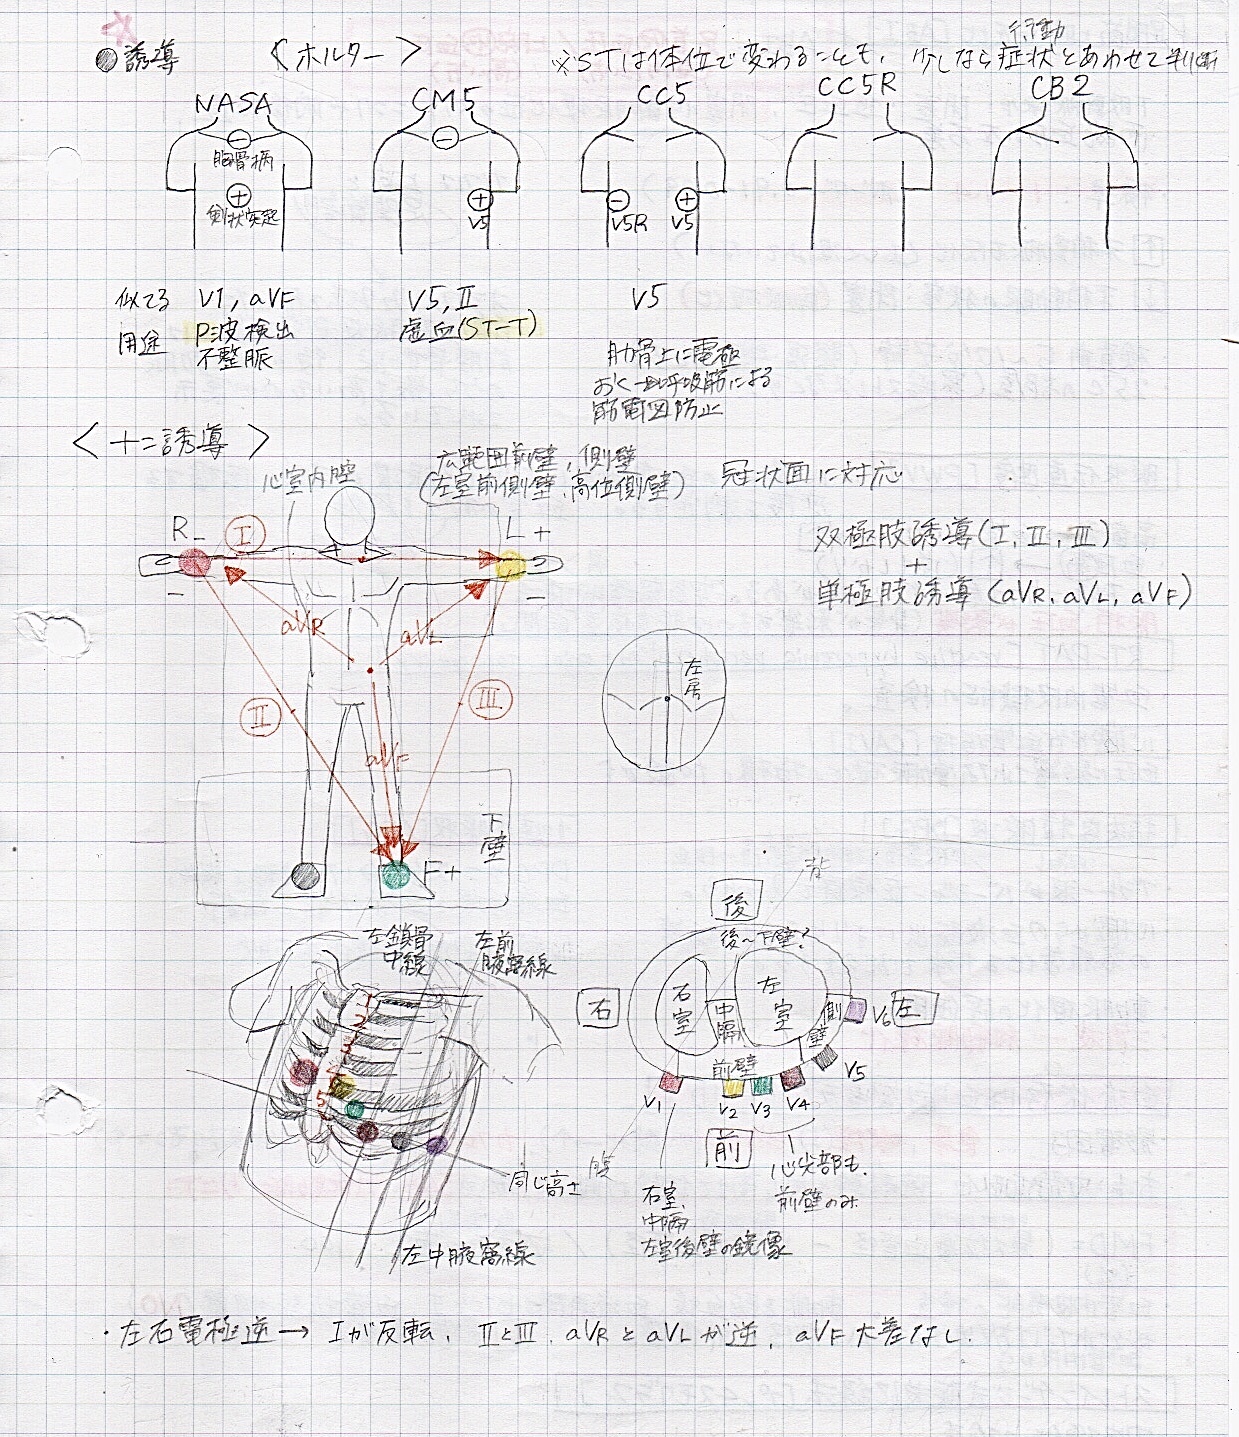 ●誘導 〈ホルター〉
行動
※STは体位で変わることも、少しなら症状とあわせて判断
NASA CM5 CC5 CC5R CB2
⊖ ⊖
胸骨柄
⊕ ⊕ ⊖ ⊕
剣状突起 V5 V5R V5
似てる V1, aVF V5, Ⅱ V5
用途 P波検出 虚血(ST-T)
不整脈
肋骨上に電極
おく→呼吸筋による
筋電図防止
〈十二誘導〉
心室内腔
広範囲前壁、側壁
(左室前側壁、高位側壁)
冠状面に対応
R- Ⅰ L+
- -
双極肢誘導(Ⅰ, Ⅱ, Ⅲ)
+
単極肢誘導(aVR, aVL, aVF)
aVR aVL
左房
Ⅱ Ⅲ
aVF
下壁
F+
背
後
後〜下壁?
左鎖骨中線
左前腋窩線
右 右室 中隔 左室 側壁 左
前壁
1
2
3
4
5
V1 V2 V3 V4 V5 V6
前
腹
同じ高さ
心尖部も
前壁のみ
右室、
中隔
左室後壁の鏡像
左中腋窩線
・左右電極逆→Ⅰが反転、ⅡとⅢ、aVRとaVLが逆、aVF大差なし.